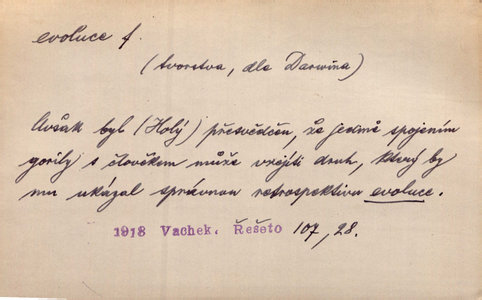 evoluce f.
(tvorstva, dle Darwina)
Avšak byl (Holý) přesvědčen, že jedině spojením
gorily s člověkem může vzejíti druh, který by
mu ukázal správnou retrospektivu evoluce.
1918 Vachek. Řešeto 107, 28.